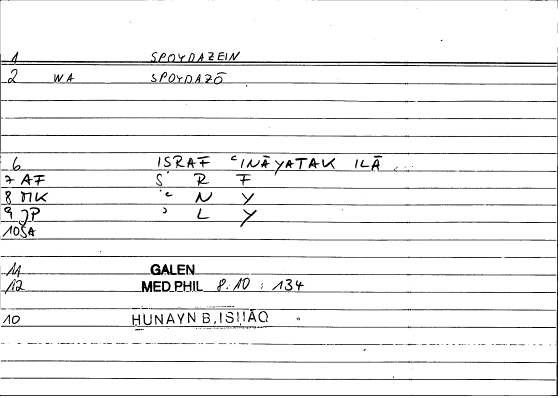 1 SPOYDAZEIN
2 WA SPOYDAZŌ
6 ISRAF ʿINĀYATAK ILĀ ...
7 AF S' R F
8 MK ʿ N Y
9 JP ʾ L Y
10 SA
11 GALEN
12 MED.PHIL 8.10 : 134
10 HUNAYN B.ISHĀQ